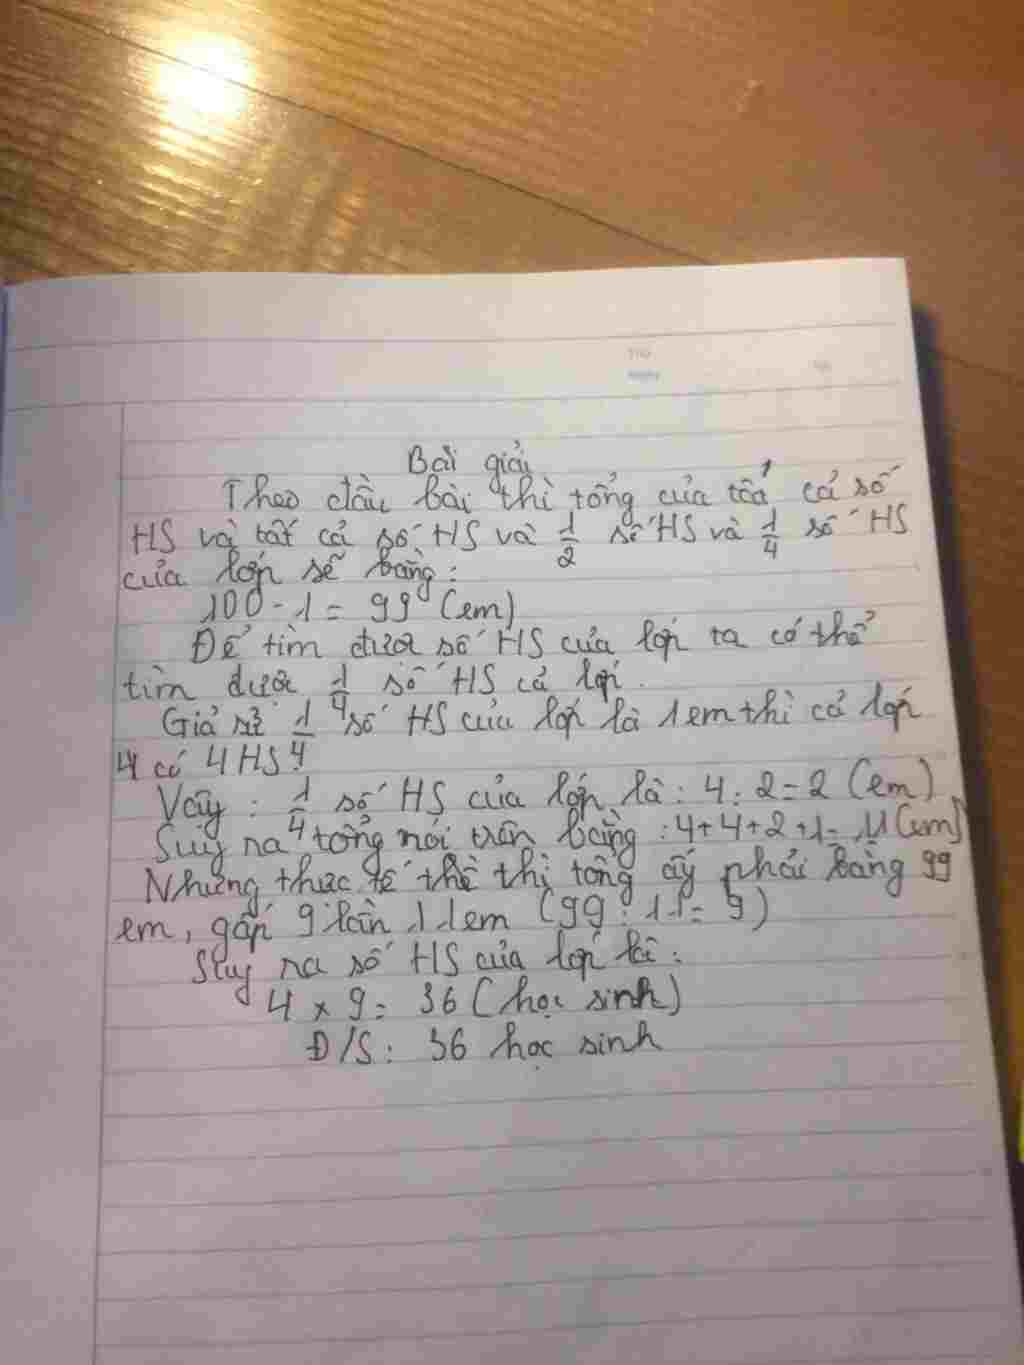 Thứ
Ngày
Bài giải
Theo đầu bài thì tổng của tất cả số
HS và tất cả số HS và 1/2 số HS và 1/4 số HS
của lớp sẽ bằng:
100 - 1 = 99 (em)
Để tìm được số HS của lớp ta có thể
tìm được 1/4 số HS cả lớp.
Giả sử 1/4 số HS của lớp là 1 em thì cả lớp
4 có 4 HS
Vậy: 1/4 số HS của lớp là: 4 : 2 = 2 (em)
Suy ra tổng nói trên bằng: 4 + 4 + 2 + 1 = 11 (em)
Nhưng thực tế thì thị tổng ấy phải bằng 99
em, gấp 9 lần 11 em (99 : 11 = 9)
Suy ra số HS của lớp là:
4 x 9 = 36 (học sinh)
Đ/S: 36 học sinh